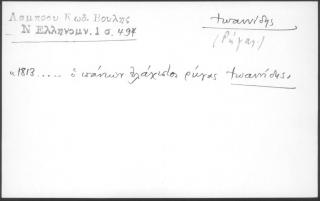 Λαμπρου Κωδ. Βουλης
Ν Ελληνομν. 1 σ. 494
Ἰωαννίδης
(Ρήγας)
«1813..... ὁ πάντων ἐλάχιστος ρήγας Ἰωαννίδης.